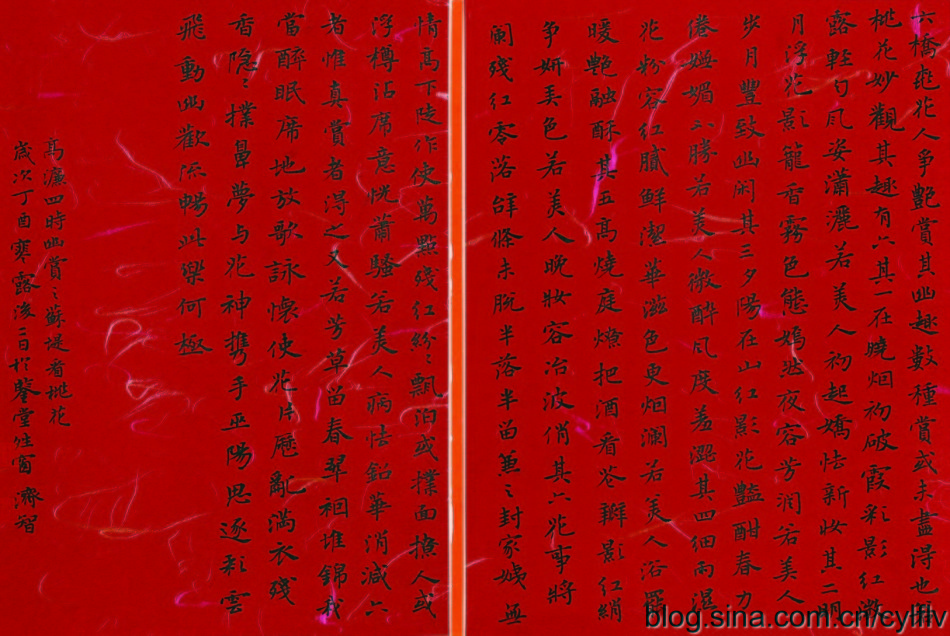 六橋桃花人爭艷賞其幽趣數種賞或未盡得也
桃花妙觀其趣有六其一在曉烟初破霞彩影紅微
露輕勻風姿瀟灑若美人初起嬌怯新妝其二明
月浮花影籠香霧色態嫣然夜容芳潤若美人
步月豐致幽閑其三夕陽在山紅影花豔酣春力
倦嫵媚不勝若美人微醉風度羞澀其四細雨濕
花粉容紅膩鮮潔華滋色更烟瀾若美人浴罷
暖艷融酥其五高燒庭燎把酒看花瓣影紅綃
爭妍美色若美人晚妝容冶波俏其六花事將
闌殘紅零落辭條未脫半落半留兼之封家姨無
情高下陡作使萬點殘紅紛紛飄泊或撲面撩人或
浮樽沾席意恍蕭騷若美人病怯鉛華消減六
者惟真賞者得之又若芳草留春翠裀堆錦我
當醉眠席地放歌詠懷使花片歷亂滿衣殘
香隱隱撲鼻夢与花神攜手巫陽思逐彩雲
飛動幽歡流暢此樂何極
高濂四時幽賞之蘇堤看桃花
歲次丁酉寒露後二日於鑒堂性窗濟智
blog.sina.com.cn/cylflv